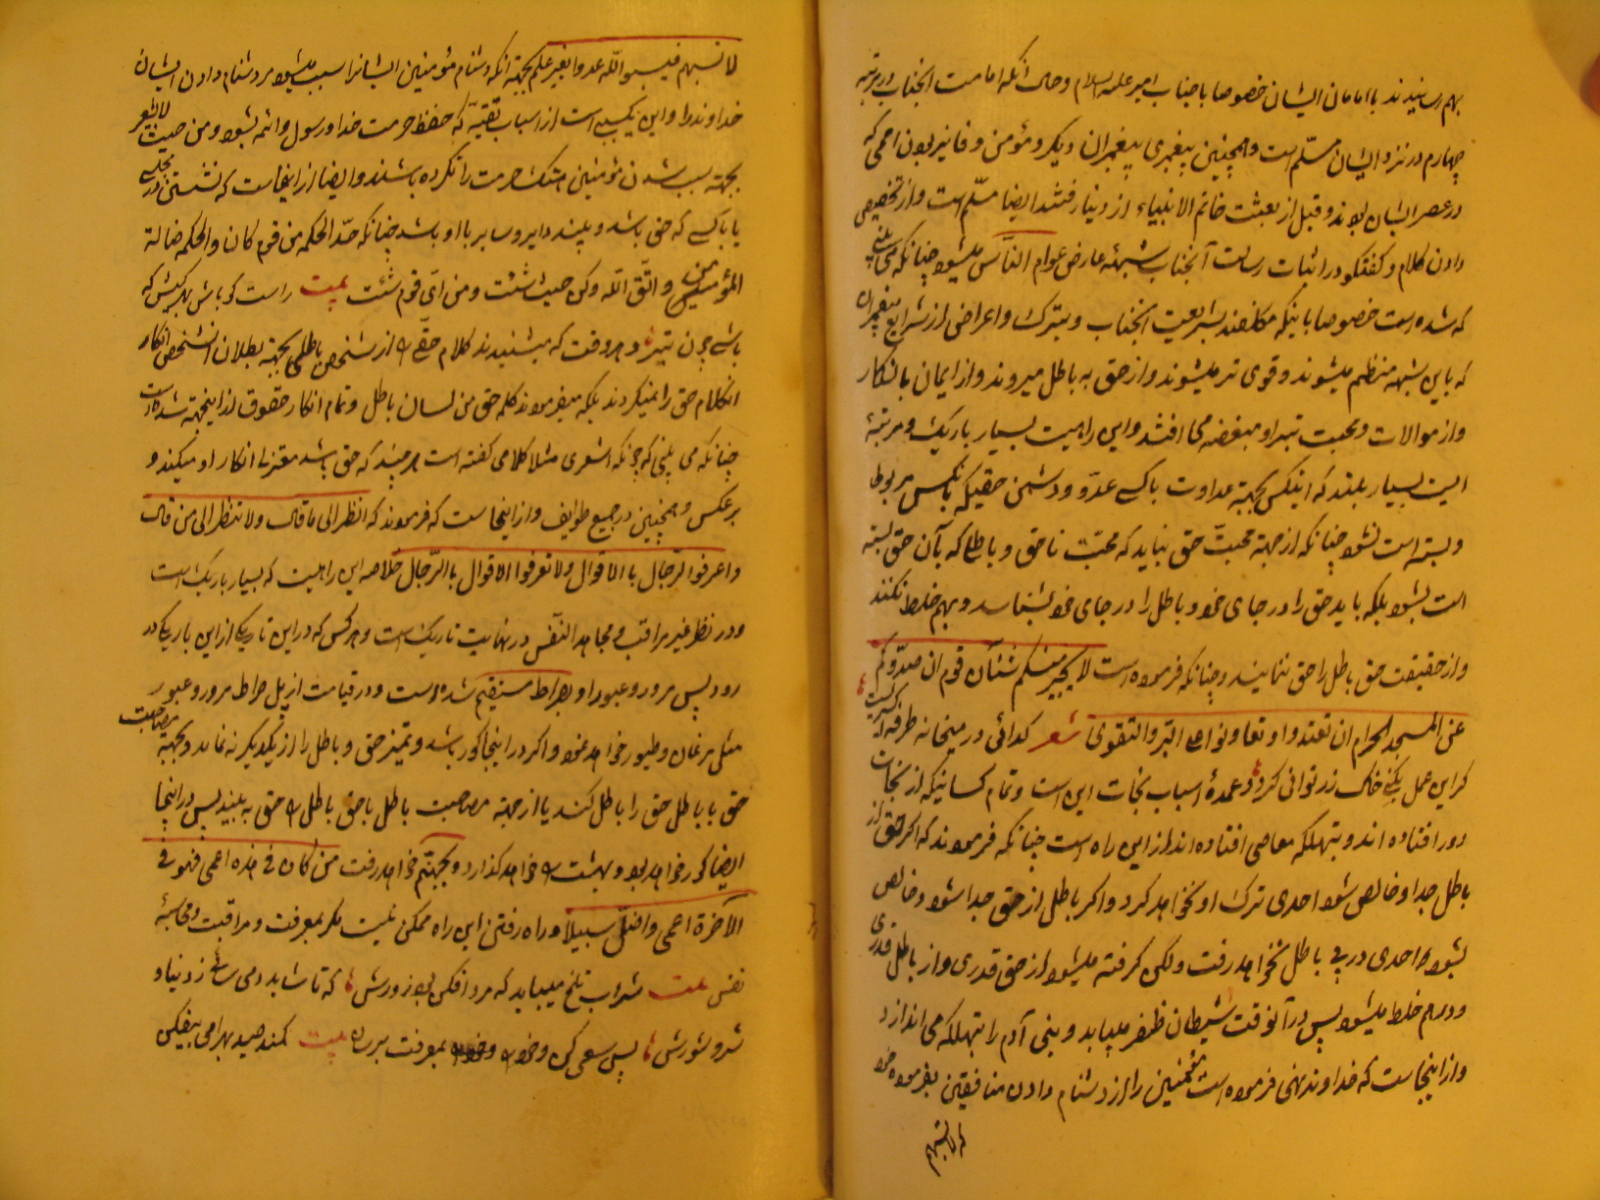 بهم رسانیدند با امامان ایشان خصوصا با جناب امیر علیه السلام و حال آنکه امامت آنجناب در مرتبه
چهارم در نزد ایشان مسلّم است و همچنین پیغمبری پیغمبران دیگر و مؤمن و فانیر بودن امی که
در عصر ایشان بودند و قبل از بعثت خاتم الانبیاء از دنیا رفتند ایضا مسلّم است و از تخصیص
دادن کلام و گفتگو در اثبات رسالت آنجناب شبهه عارض عوام النّاس میشود چنانکه می بینی
که شده است خصوصا باینکه مکلفند بشریعت آنجناب و بترک و اعراض از شرایع پیغمبران
که باین شبهه منتظم میشوند و قوی تر میشوند و از حق به باطل میروند و از ایمان بانکار
و از موالات و محبت تبرا و مبغضه می افتند و این راهیست بسیار باریک و مرتبهٔ
ایست بسیار بلند که اینکس بجهة عداوت با کسی عدوّ و دشمن حقیکه بانکس مربوط
و بسته است نشود چنانکه از جهة محبت حق نباید که محبّت ناحق و باطلی که بآن حق بسته
است بشود بلکه باید حق را در جای خود و باطل را در جای خود بشناسد و بهم خلط نکنند
و از حقیقت حق باطل را حق ننمایند و چنانکه فرموده است لا یجرمنکم شنآن قوم ان صدّوکم
عن المسجد الحرام ان تعتدوا و تعاونوا علی البرّ والتقوی شعر گدائی در میخانه طرفه اکسیریست
گر این عمل بکنی خاک زر توانی کرد و عمدهٔ اسباب نجات این است و تمام کسانیکه از نجات
دور افتاده اند و بتهلکه معاصی افتاده اند از این راه است چنانکه فرمودند که اگر حق از
باطل جدا و خالص شود احدی ترک او نخواهد کرد و اگر باطل از حق جدا شود و خالص
بشود احدی در پی باطل نخواهد رفت ولکن گرفته میشود از حق قدری و از باطل قدری
و درهم خلط میشود پس در آنوقت شیطان ظفر میباید و بنی آدم را بتهلکه می اندازد
و از اینجاست که خداوند نهی فرموده است مؤمنین را از دشنام دادن منافقین بفرموده خود
که لا تسبهم
لا تسبهم فیسبوا اللّه عدوا بغیر علم بجهة آنکه دشنام مؤمنین ایشانرا سبب میشود مر دشنام دادن ایشان
خداوند را و این یکسبی است از اسباب تقیّه که حفظ حرمت خدا و رسول و ائمه بشود و من حیث لا یشعر
بجهة سبب شدن مؤمنین هتک حرمت را نکرده باشند و ایضا از اینجاست که نشستن در مجلسی
یا با کسی که حق باشد و بپسند دایر و سایر با او باشد چنانکه خذ الحکمه من فم کان و الحکمه ضالة
المؤمنین و اتّق اللّه و کن حیث شئت و من ایّ قوم شئت بیت راست گو باش بهر کیش که
باشی چون تیر و هر وقت که میشنیدند کلام حقی را از شخص باطلی بجهة بطلان انشخص انکار
انکلام حق را نمیکردند بلکه میفرمودند کلمه حق من لسان باطل و تمام انکار حقوق از اینجهة شده است
چنانکه می بینی که چونکه اشعری مثلا کلامی گفته است هرچند که حق باشد معتزله انکار او میکند و
برعکس و همچنین در جمیع طوایف و از اینجاست که فرمودند که انظر الی ما قال ولا تنظر الی من قال
و اعرفوا الرّجال بالاقوال ولا تعرفوا الاقوال بالرّجال خلاصه این راهیست که بسیار باریک است
و در نظر غیر مراقب و مجاهد النّفس در نهایت تاریک است و هرکس که در این تاریکی از این باریکی در
رود پس مرور و عبور او بصراط مستقیم شده است و در قیامت از پل صراط مرور و عبور
مثل مرغان و طیور خواهد نمود و اگر در اینجا کور باشد و تمیز حق و باطل را از یکدیگر نه نماید و بجهة مصاحبت
حق با باطل حق را باطل کند یا از جهة مصاحبت باطل با حق باطل را حق به بیند پس در اینجا
ایضا کور خواهد بود و بهشت را خواهد گذارد و بجهنّم خواهد رفت من کان فی هذه اعمی فهو فی
الآخرة اعمی و اضلّ سبیلا و راه رفتن این راه ممکن نیست مگر بمعرفت و مراقبت و محاسبهٔ
نفس بیت شراب تلخ میباید که مرد افکن بود زورش که تا شاید دمی ساید ز دنیا و
شر و شورش پس سعی کن و خود را بمعرفت برسان بیت کمند صید بهرامی بیفکن